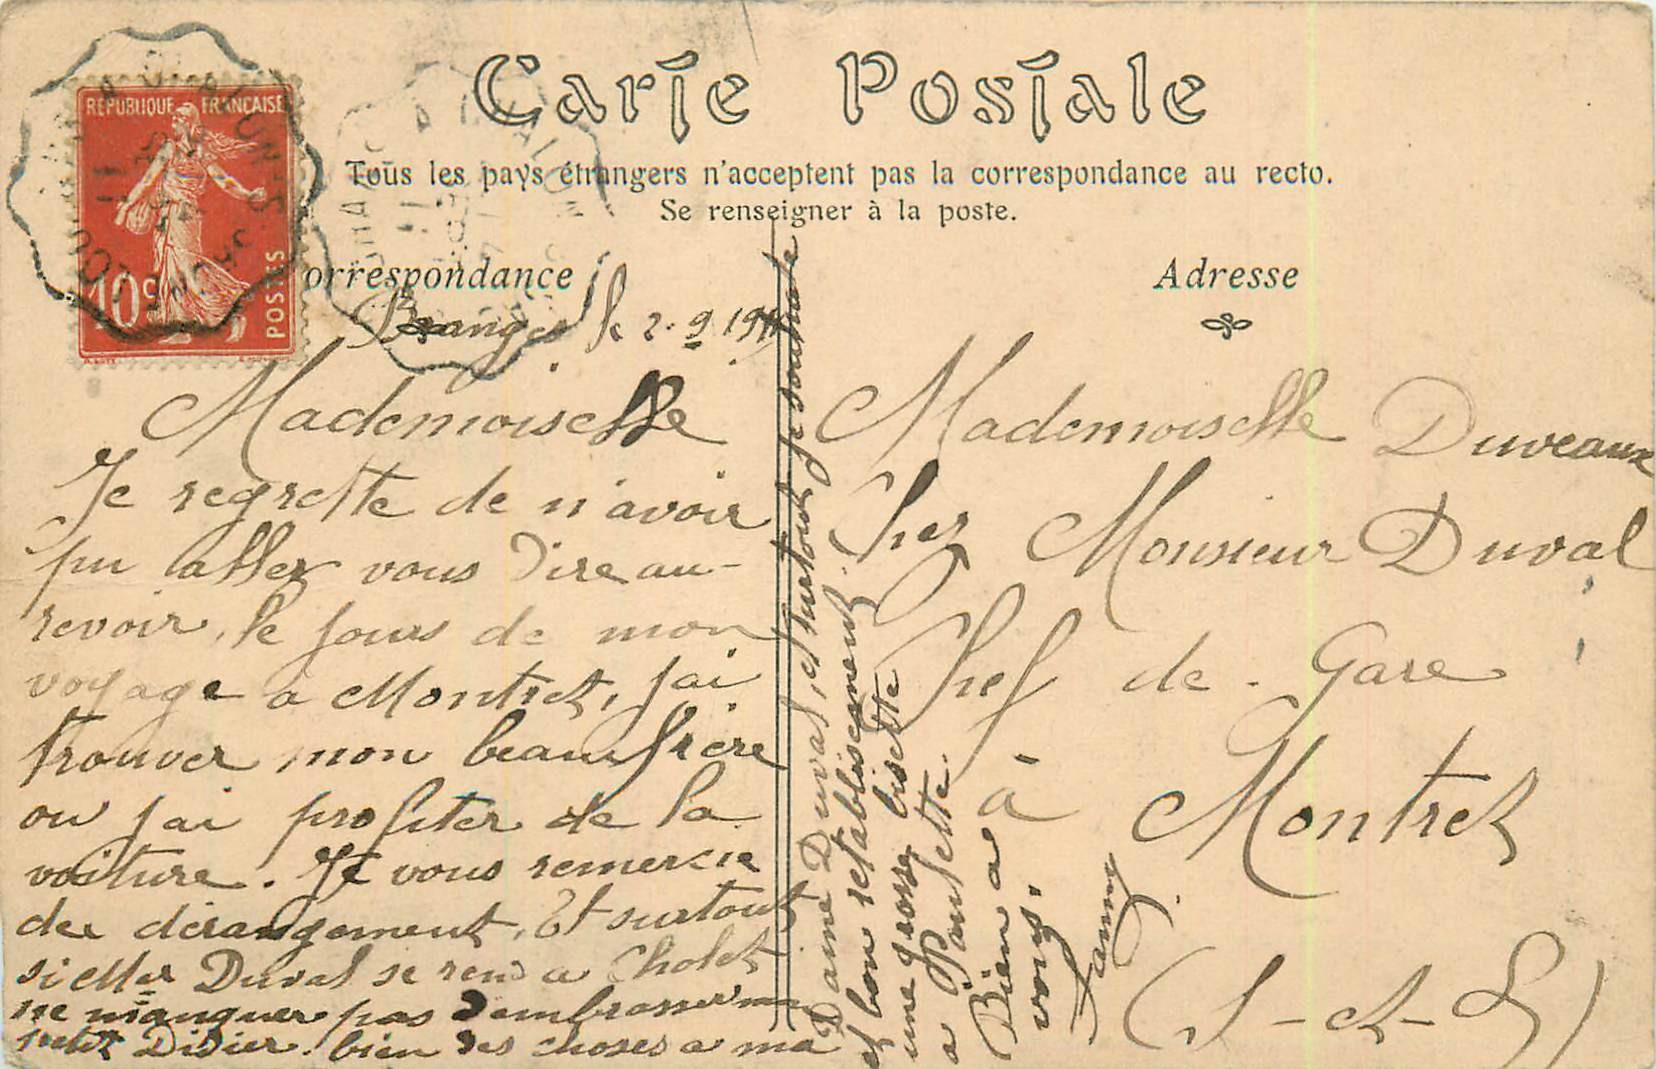 Carte Postale
Tous les pays étrangers n'acceptent pas la correspondance au recto.
Se renseigner à la poste.
RÉPUBLIQUE FRANÇAISE
10c
POSTES
orrespondance
Branges le 2.9.19
Mademoiselle
Je regrette de n'avoir
pu aller vous dire au-
revoir, le jours de mon
voyage a Montret, jai
trouver mon beaufrère
ou jai profiter de la
voiture. Je vous remercie
der dérangement, Et surtout
si Duval se rend a Cholet
ne manquer pas d'embrasser ma
petit Didier. bien des choses a ma
Dame Duval, et surtout je souhaite
et bon retablisement.
une grosse bisette
a Paulette.
Bien a
vous.
Fanny
Adresse
Mademoiselle Duveaux
Chez Monsieur Duval
Chef de Gare
à Montret
(S-et-L)